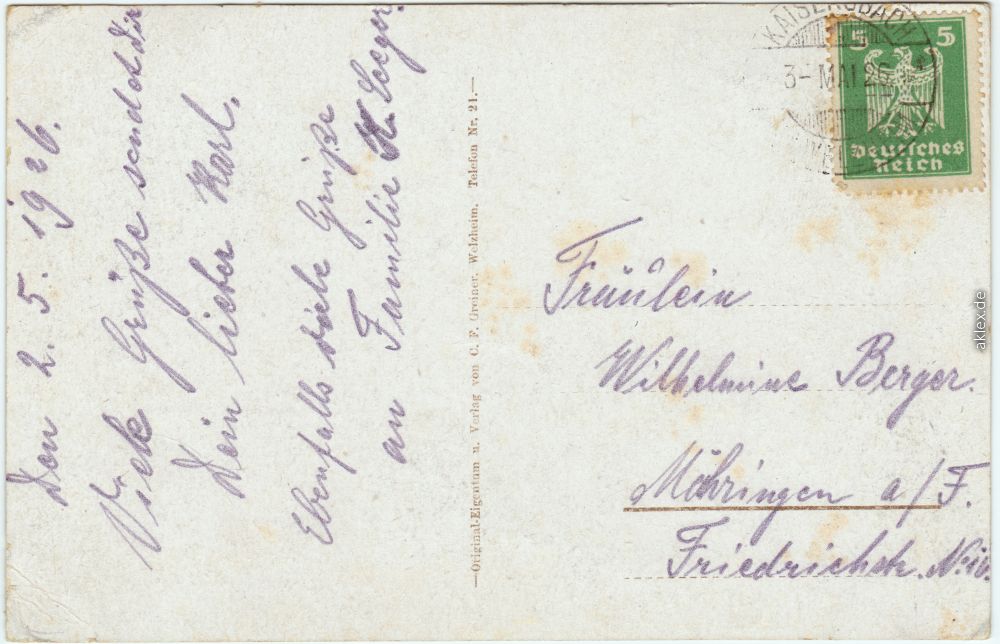 Den 2. 5. 1926.
Viele Grüße sendet dir
Dein lieber Karl.
Ebenfalls viele Grüße
an Familie K. Seeger.
—Original-Eigentum u. Verlag von C. F. Greiner, Welzheim. Telefon Nr. 21.—
KAISERSBACH
3- MAI 26
5 5
Deutsches
Reich
Fräulein
Wilhelmine Berger.
Möhringen a/F.
Friedrichstr. Nr.
aklex.de